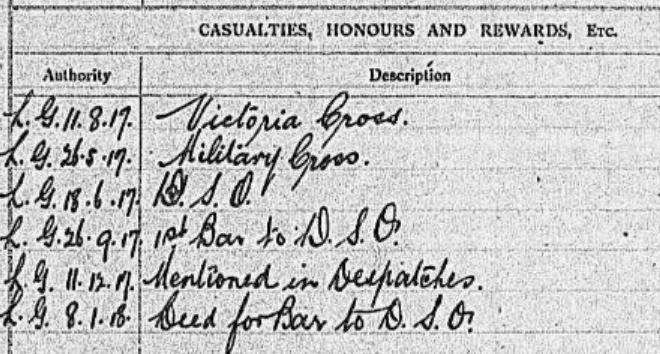 CASUALTIES, HONOURS AND REWARDS, ETC.
Authority Description
L. G. 11.8.17. Victoria Cross.
L. G. 26.5.17. Military Cross.
L. G. 18.6.17. D. S. O.
L. G. 26.9.17. 1st Bar to D. S. O.
L. G. 11.12.17. Mentioned in Despatches.
L. G. 8.1.18. Deed for Bar to D. S. O.